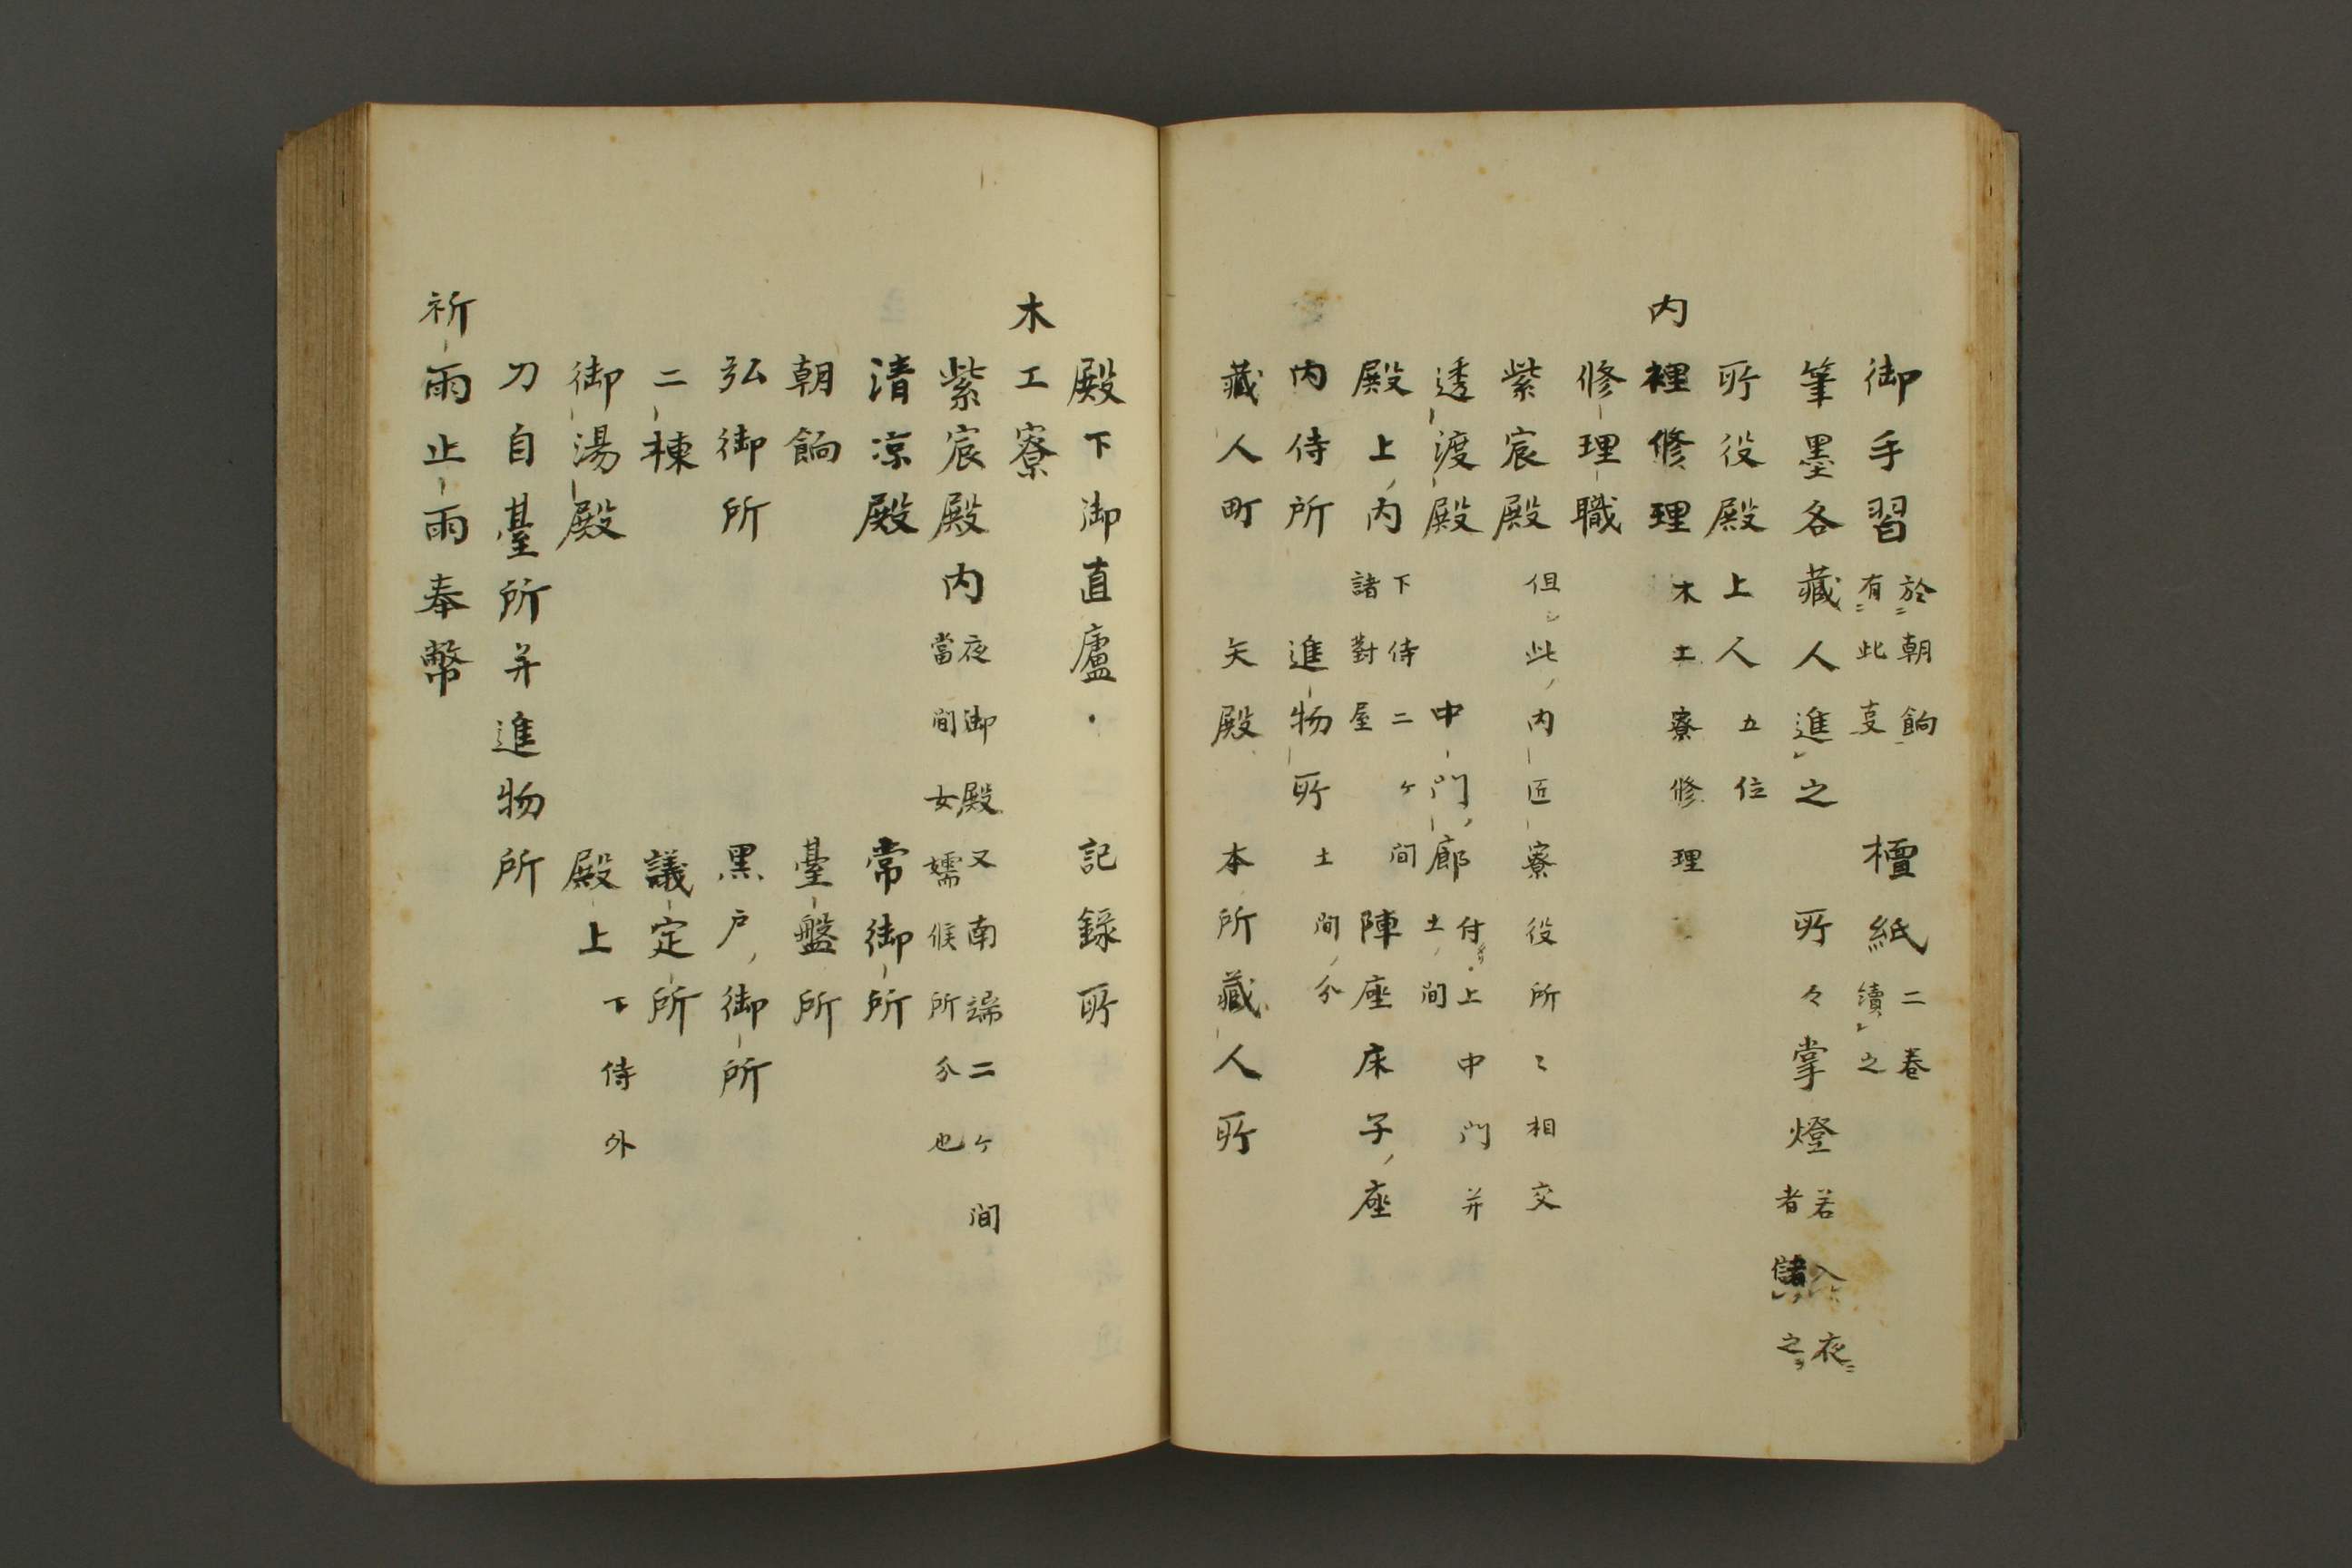 御手習 於朝餉有此㕝 檀紙 二巻續之
筆墨各藏人進之 所々掌燈 若入夜者儲之
所役殿上人 五位
内裡修理 木工寮修理
修理職
紫宸殿 但此内匠寮役所々相交
透渡殿 中門廊 付上中門并土間
殿上内 下侍二ヶ間諸對屋 陣座床子座
内侍所 進物所 土間分
藏人町 矢殿 本所藏人所
殿下御直廬・記録所
木工寮
紫宸殿内 夜御殿又南端二ヶ間當間女嬬候所分也
清凉殿 常御所
朝餉 臺盤所
弘御所 黒戸御所
二棟 議定所
御湯殿 殿上 下侍外
刀自臺所并進物所
祈雨止雨奉幣